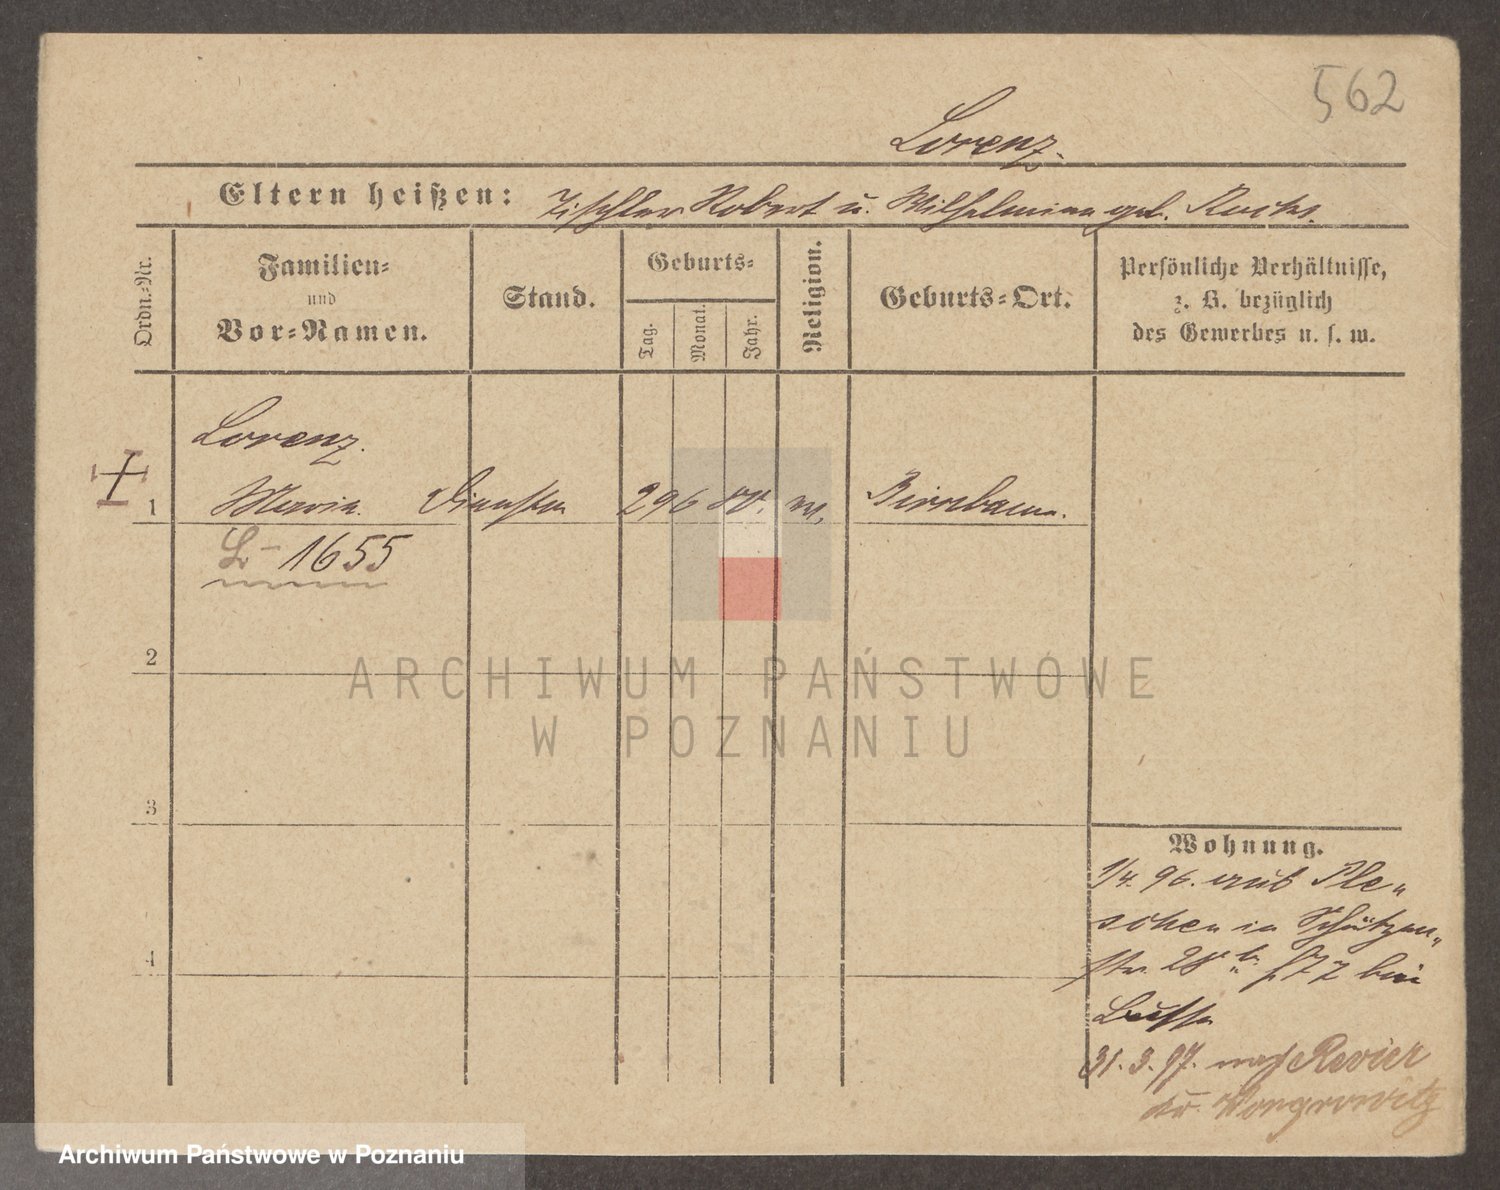 562
Lorenz.
Eltern heißen: Tischler Robert u. Wilhelmine geb.
Ordn.-Nr.
Familien-
und
Vor-Namen.
Stand.
Geburts-
Tag.
Monat.
Jahr.
Religion.
Geburts-Ort.
Persönliche Verhältnisse,
z. B. bezüglich
des Gewerbes u. s. w.
Lorenz.
1 Maria 29 6 ev. Birnbaum.
L- 1655
2
3
4
Wohnung.
1/4. 96. aus Ple-
schen in Schützen-
str. 28 b. bei
Busse
31. 3. 97. nach Revier
Kr. Wongrowitz
ARCHIWUM PAŃSTWOWE
W POZNANIU
Archiwum Państwowe w Poznaniu